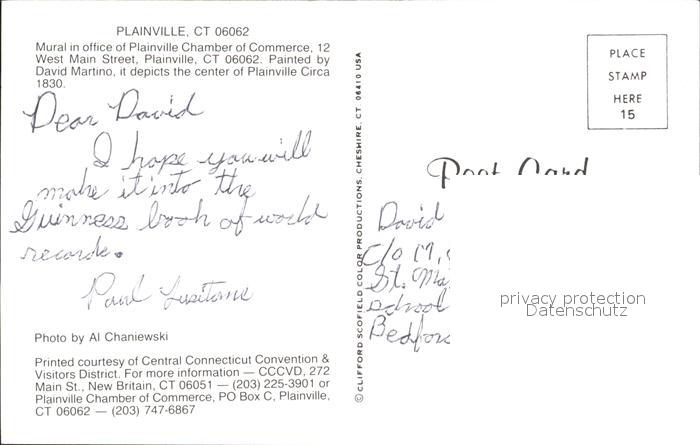 PLAINVILLE, CT 06062
Mural in office of Plainville Chamber of Commerce, 12
West Main Street, Plainville, CT 06062. Painted by
David Martino, it depicts the center of Plainville Circa
1830.
Dear David
I hope you will
make it into the
Guinness book of world
records.
Paul
Photo by Al Chaniewski
Printed courtesy of Central Connecticut Convention &
Visitors District. For more information — CCCVD, 272
Main St., New Britain, CT 06051 — (203) 225-3901 or
Plainville Chamber of Commerce, PO Box C, Plainville,
CT 06062 — (203) 747-6867
© CLIFFORD SCOFIELD COLOR PRODUCTIONS, CHESHIRE, CT 06410 USA
PLACE
STAMP
HERE
15
Post Card
David
C/o M,
St. Ma
school
Bedford
privacy protection
Datenschutz